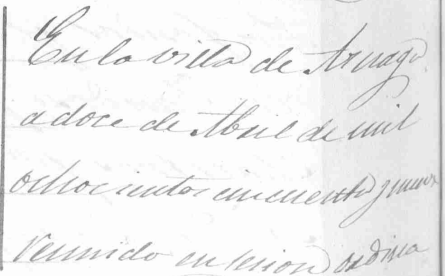 En la villa de Azuaga
a doce de Abril de mil
ochocientos cincuenta y nueve
reunido en sesion ordina